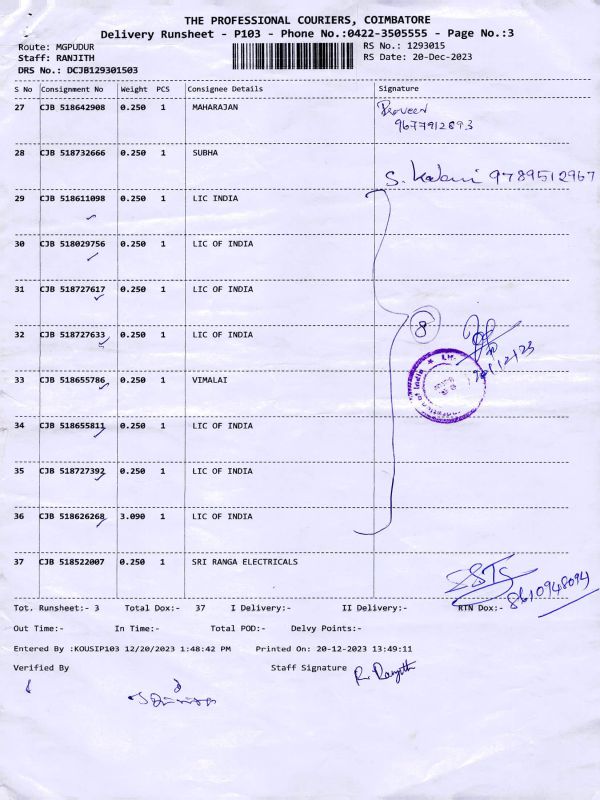 THE PROFESSIONAL COURIERS, COIMBATORE
Delivery Runsheet - P103 - Phone No.:0422-3505555 - Page No.:3
Route: MGPUDUR RS No.: 1293015
Staff: RANJITH RS Date: 20-Dec-2023
DRS No.: DCJB129301503
S No Consignment No Weight PCS Consignee Details Signature
27 CJB 518642908 0.250 1 MAHARAJAN Praveen
9677912893
28 CJB 518732666 0.250 1 SUBHA
S. Kalani 9789512967
29 CJB 518611098 0.250 1 LIC INDIA
30 CJB 518029756 0.250 1 LIC OF INDIA
31 CJB 518727617 0.250 1 LIC OF INDIA
8
32 CJB 518727633 0.250 1 LIC OF INDIA
33 CJB 518655786 0.250 1 VIMALAI
of India
34 CJB 518655811 0.250 1 LIC OF INDIA
35 CJB 518727392 0.250 1 LIC OF INDIA
36 CJB 518626268 3.090 1 LIC OF INDIA
37 CJB 518522007 0.250 1 SRI RANGA ELECTRICALS
8610948094
Tot. Runsheet:- 3 Total Dox:- 37 I Delivery:- II Delivery:- RTN Dox:-
Out Time:- In Time:- Total POD:- Delvy Points:-
Entered By :KOUSIP103 12/20/2023 1:48:42 PM Printed On: 20-12-2023 13:49:11
Verified By Staff Signature R. Ranjith